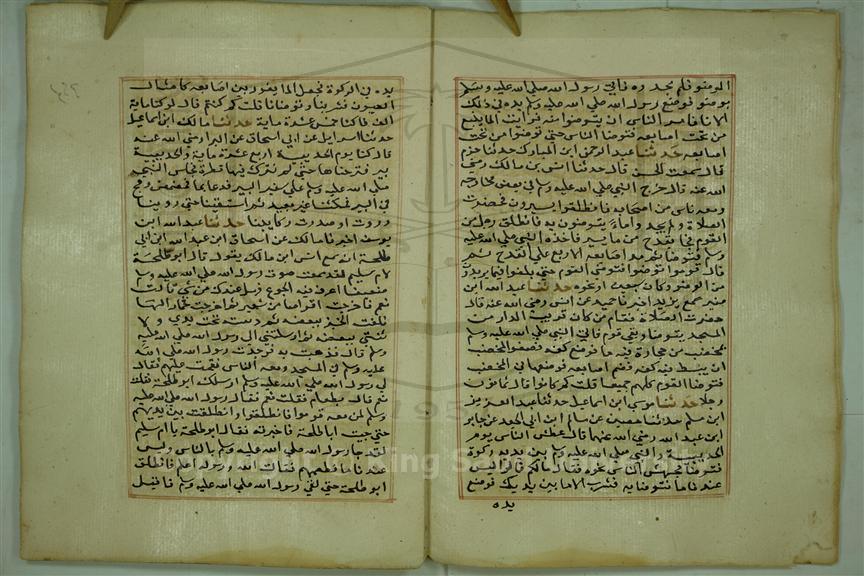 الوضو فلم يجدوه فاتي رسول الله صلي الله عليه وسلم
بوضو فوضع رسول الله صلي الله عليه وسلم يده في ذلك
الانا فامر الناس ان يتوضوا منه فرايت الما ينبع
من تحت اصابعه فتوضا الناس حتي توضوا من تحت
اصابعه حدثنا عبد الرحمن ابن المبارك حدثنا حزم
قال سمعت الحسن قال حدثنا انس بن مالك رضي
الله عنه قال خرج النبي صلي الله عليه وسلم في بعض مخارجه
ومعه ناس من اصحابه فانطلقوا يسيرون فحضرت
الصلاة ولم يجدوا ماء يتوضون به فانطلق رجل من
القوم فجا بقدح من ما يسير فاخذه النبي صلي الله عليه
وسلم فتوضا ثم مد اصابعه الاربع علي القدح ثم
قال قوموا توضوا فتوضي القوم حتي بلغوا فيما يريدون
من الوضو وكان سبعين او نحوه حدثنا عبد الله ابن
منير سمع يزيد اخبرنا حميد عن انس رضي الله عنه قال
حضرت الصلاة فقام من كان قريب الدار من
المسجد يتوضا وبقي قوم فاتي النبي صلي الله عليه وسلم
بمخضب من حجارة فيه ما فوضع كفه فصغر المخضب
ان يبسط فيه كفه فضم اصابعه فوضعها في المخضب
فتوضا القوم كلهم جميعا قلت كم كانوا قال ثمانون
رجلا حدثنا موسي ابن اسماعيل حدثنا عبد العزيز
ابن مسلم حدثنا حصين عن سالم ابن ابي الجعد عن جابر
ابن عبد الله رضي الله عنهما قال عطش الناس يوم
الحديبية والنبي صلي الله عليه وسلم بين يديه ركوة
فتوضا فجهش الناس نحوه فقال ما لكم قالوا ليس
عندنا ما نتوضا به نشرب الا ما بين يديك فوضع
يده
يده في الركوة فجعل الما يفور بين اصابعه كامثال
العيون فشربنا وتوضانا قلت كم كنتم قال لو كنا ماية
الف لكفانا كنا خمس عشرة ماية حدثنا مالك ابن اسماعيل
حدثنا اسرايل عن ابي اسحاق عن البرا رضي الله عنه
قال كنا يوم الحديبية اربع عشرة ماية والحديبية
بير فنزحناها حتي لم نترك فيها قطرة فجلس النبي
صلي الله عليه وسلم علي شفير البير فدعا بما فمضمض ومج
في البير فمكثنا غير بعيد ثم استقينا حتي روينا
وروت او صدرت ركايبنا حدثنا عبد الله ابن
يوسف اخبرنا مالك عن اسحاق ابن عبد الله ابن ابي
طلحة انه سمع انس ابن مالك يقول قال ابو طلحة
لام سليم لقد سمعت صوت رسول الله صلي الله عليه وسلم
ضعيفا اعرف فيه الجوع فهل عندك من شي قالت
نعم فاخرجت اقراصا من شعير ثم اخرجت خمارا لها
فلفت الخبز ببعضه ثم دسته تحت يدي ولا
ثتني ببعضه ثم ارسلتني الي رسول الله صلي الله عليه
وسلم قال فذهبت به فوجدت رسول الله صلي الله
عليه وسلم في المسجد ومعه الناس فقمت عليهم فقال
لي رسول الله صلي الله عليه وسلم ارسلك ابو طلحة فقلت
نعم قال بطعام فقلت نعم فقال رسول الله صلي الله عليه
وسلم لمن معه قوموا فانطلقوا وانطلقت بين يديهم
حتي جيت ابا طلحة فاخبرته فقال ابو طلحة يا ام سليم
لقد جا رسول الله صلي الله عليه وسلم بالناس وليس
عندنا ما نطعمهم فقالت الله ورسوله اعلم فانطلق
ابو طلحة حتي لقي رسول الله صلي الله عليه وسلم فاقبل